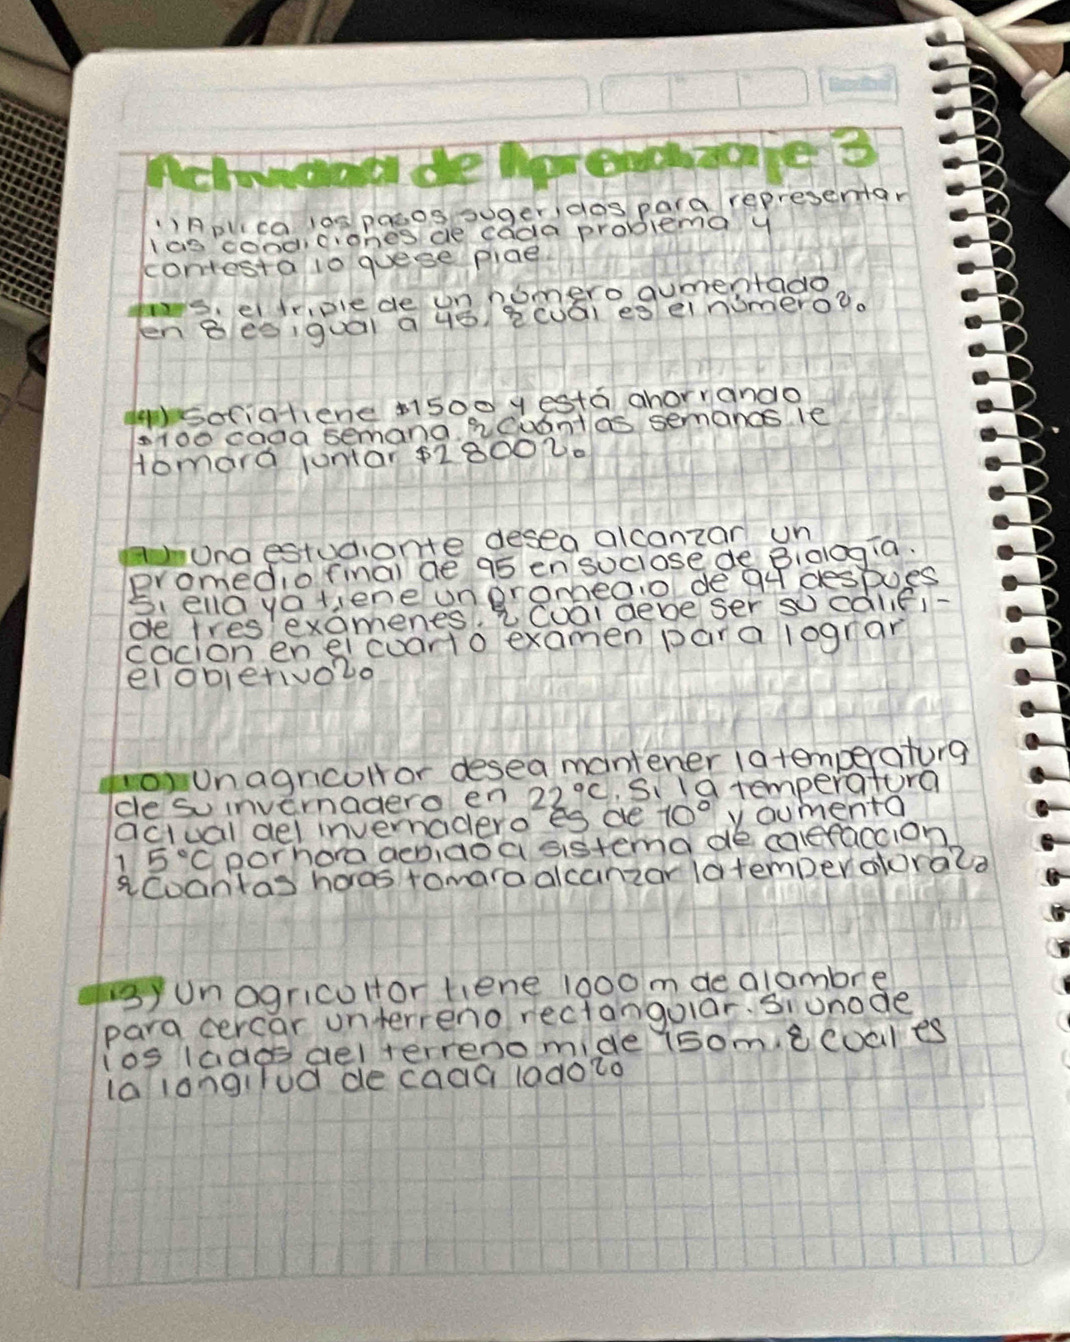 Actividad de Aprendizaje 3
1) Aplica los pasos sugeridos para representar
las condiciones de cada problema y
contesta lo quese pide.
1) Si el triple de un número aumentado
en 8 es igual a 45, ¿cuál es el número?.
4) Sofia tiene $1500 y está ahorrando
$100 cada semana. ¿Cuántas semanas le
tomara juntar $2800?.
7) Una estudiante desea alcanzar un
promedio final de 95 en suclase de Biología.
Si ella ya tiene un promedio de 94 despues
de tres examenes. ¿Cual debe ser su califi-
cacion en el cuarto examen para lograr
el objetivo?.
10) Un agricultor desea mantener la temperatura
de su invernadero en 22°C. Si la temperatura
actual del invernadero es de 10° y aumenta
1.5°C por hora debido a sistema de calefaccion
¿Cuantas horas tomara alcanzar la temperatura?.
13) Un agricultor tiene 1000m de alambre
para cercar un terreno rectangular. Si uno de
los lados del terreno mide 150m. ¿cual es
la longitud de cada lado?.